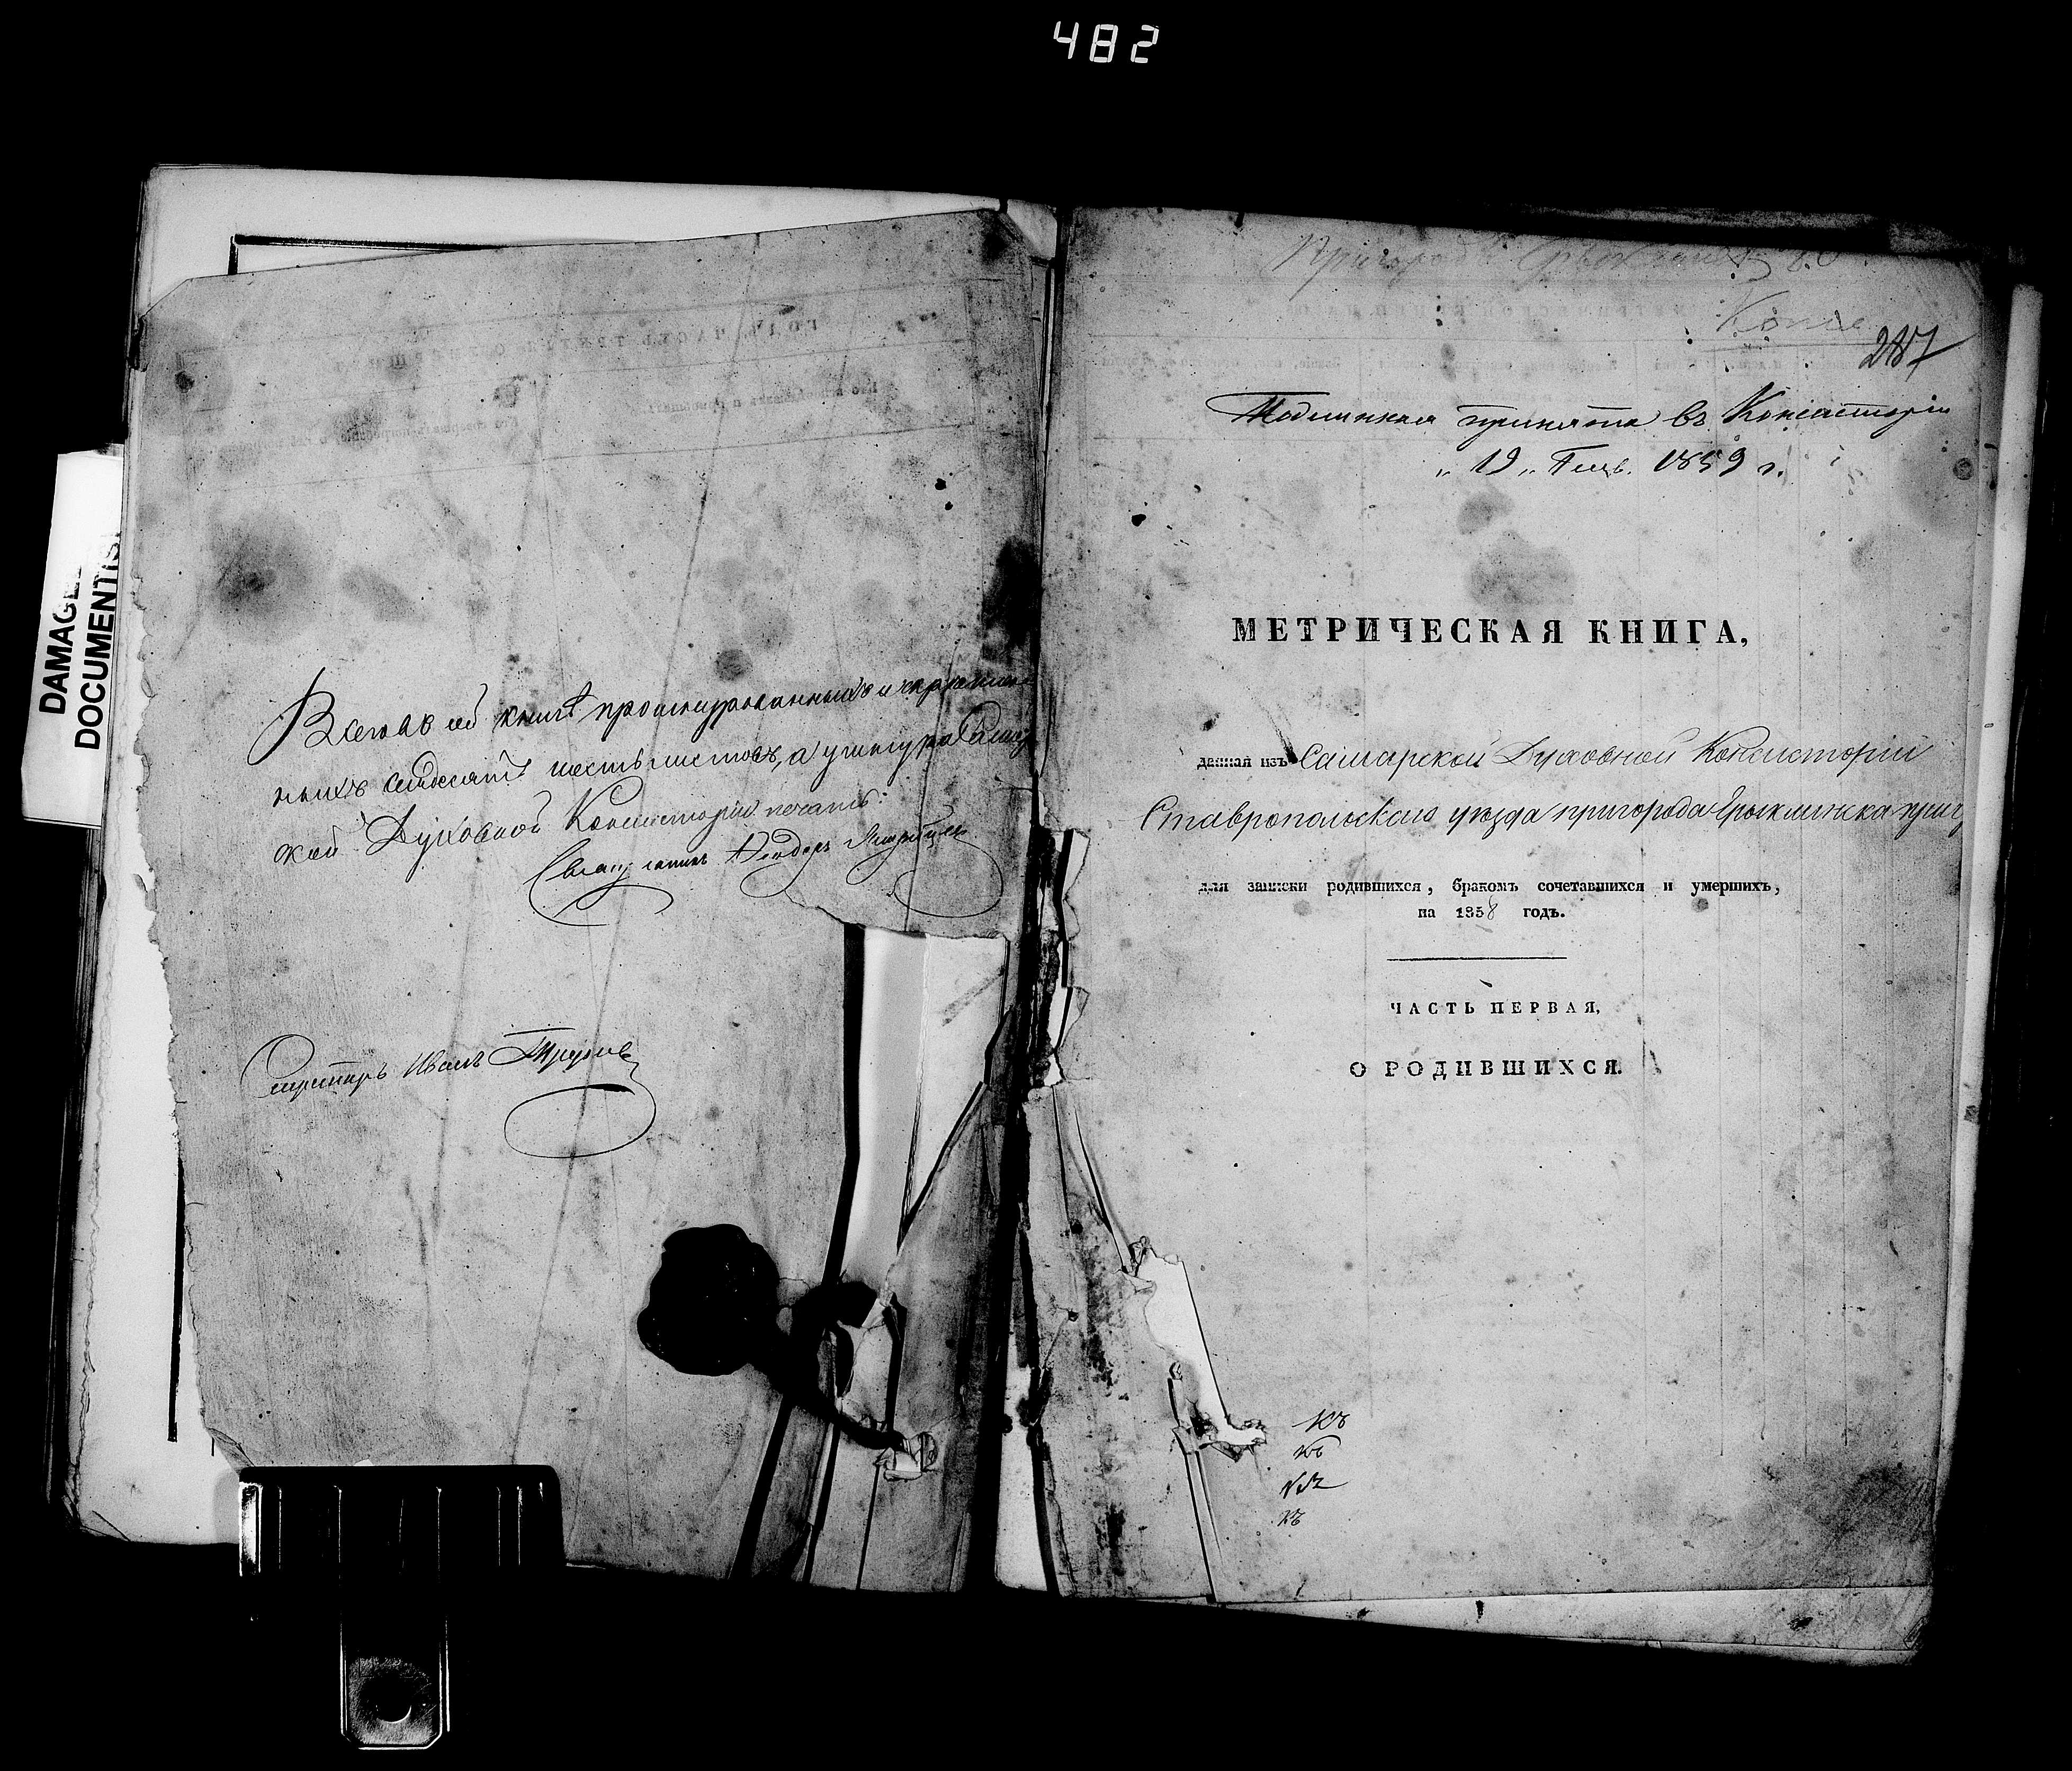 482
DAMAGED
DOCUMENT(S)
Всего въ сей книгѣ прошнурованныхъ и скрѣплен-
ныхъ семдесятъ шесть листовъ, а у шнура Самар
ской Духовной Консисторіи печать:
Священникъ Ѳеодоръ
Секретарь Иванъ
Пригорода Ерыклинска
Копія
287
Подлинная принята въ Консисторіи
„ 19 „ Генв. 1859 г.
МЕТРИЧЕСКАЯ КНИГА,
данная изъ Самарской Духовной Консисторіи
Ставропольскаго уѣзда пригорода Ерыклинска прич
для записки родившихся, бракомъ сочетавшихся и умершихъ,
на 1858 годъ.
ЧАСТЬ ПЕРВАЯ,
О РОДИВШИХСЯ.